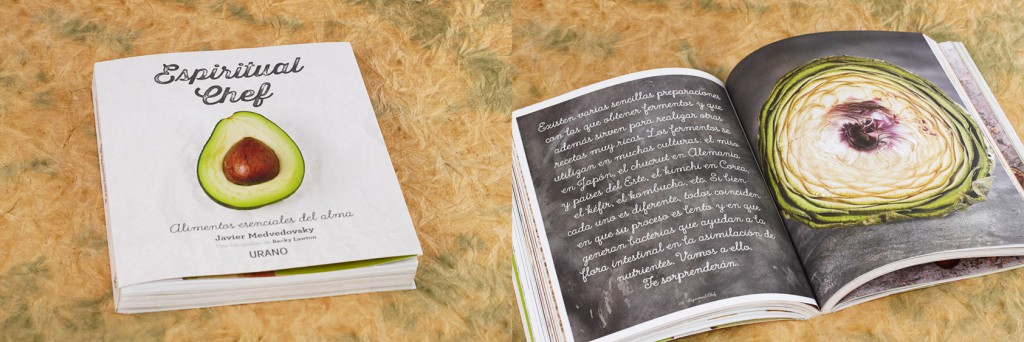 Espiritual
Chef
Alimentos esenciales del alma
Javier Medvedovsky
Con fotografías de Becky Lawton
URANO
Existen varias sencillas preparaciones
con las que obtener fermentos y que
además sirven para realizar otras
recetas muy ricas. Los fermentos se
utilizan en muchas culturas: el miso
en Japón, el chucrut en Alemania
y países del Este, el kimchi en Corea,
el kéfir, el kombucha, etc. Si bien,
cada uno es diferente, todos coinciden
en que su proceso es lento y en que
generan bacterias que ayudan a la
flora intestinal en la asimilación de
nutrientes. Vamos a ello.
Te sorprenderán.
Espiritual Chef